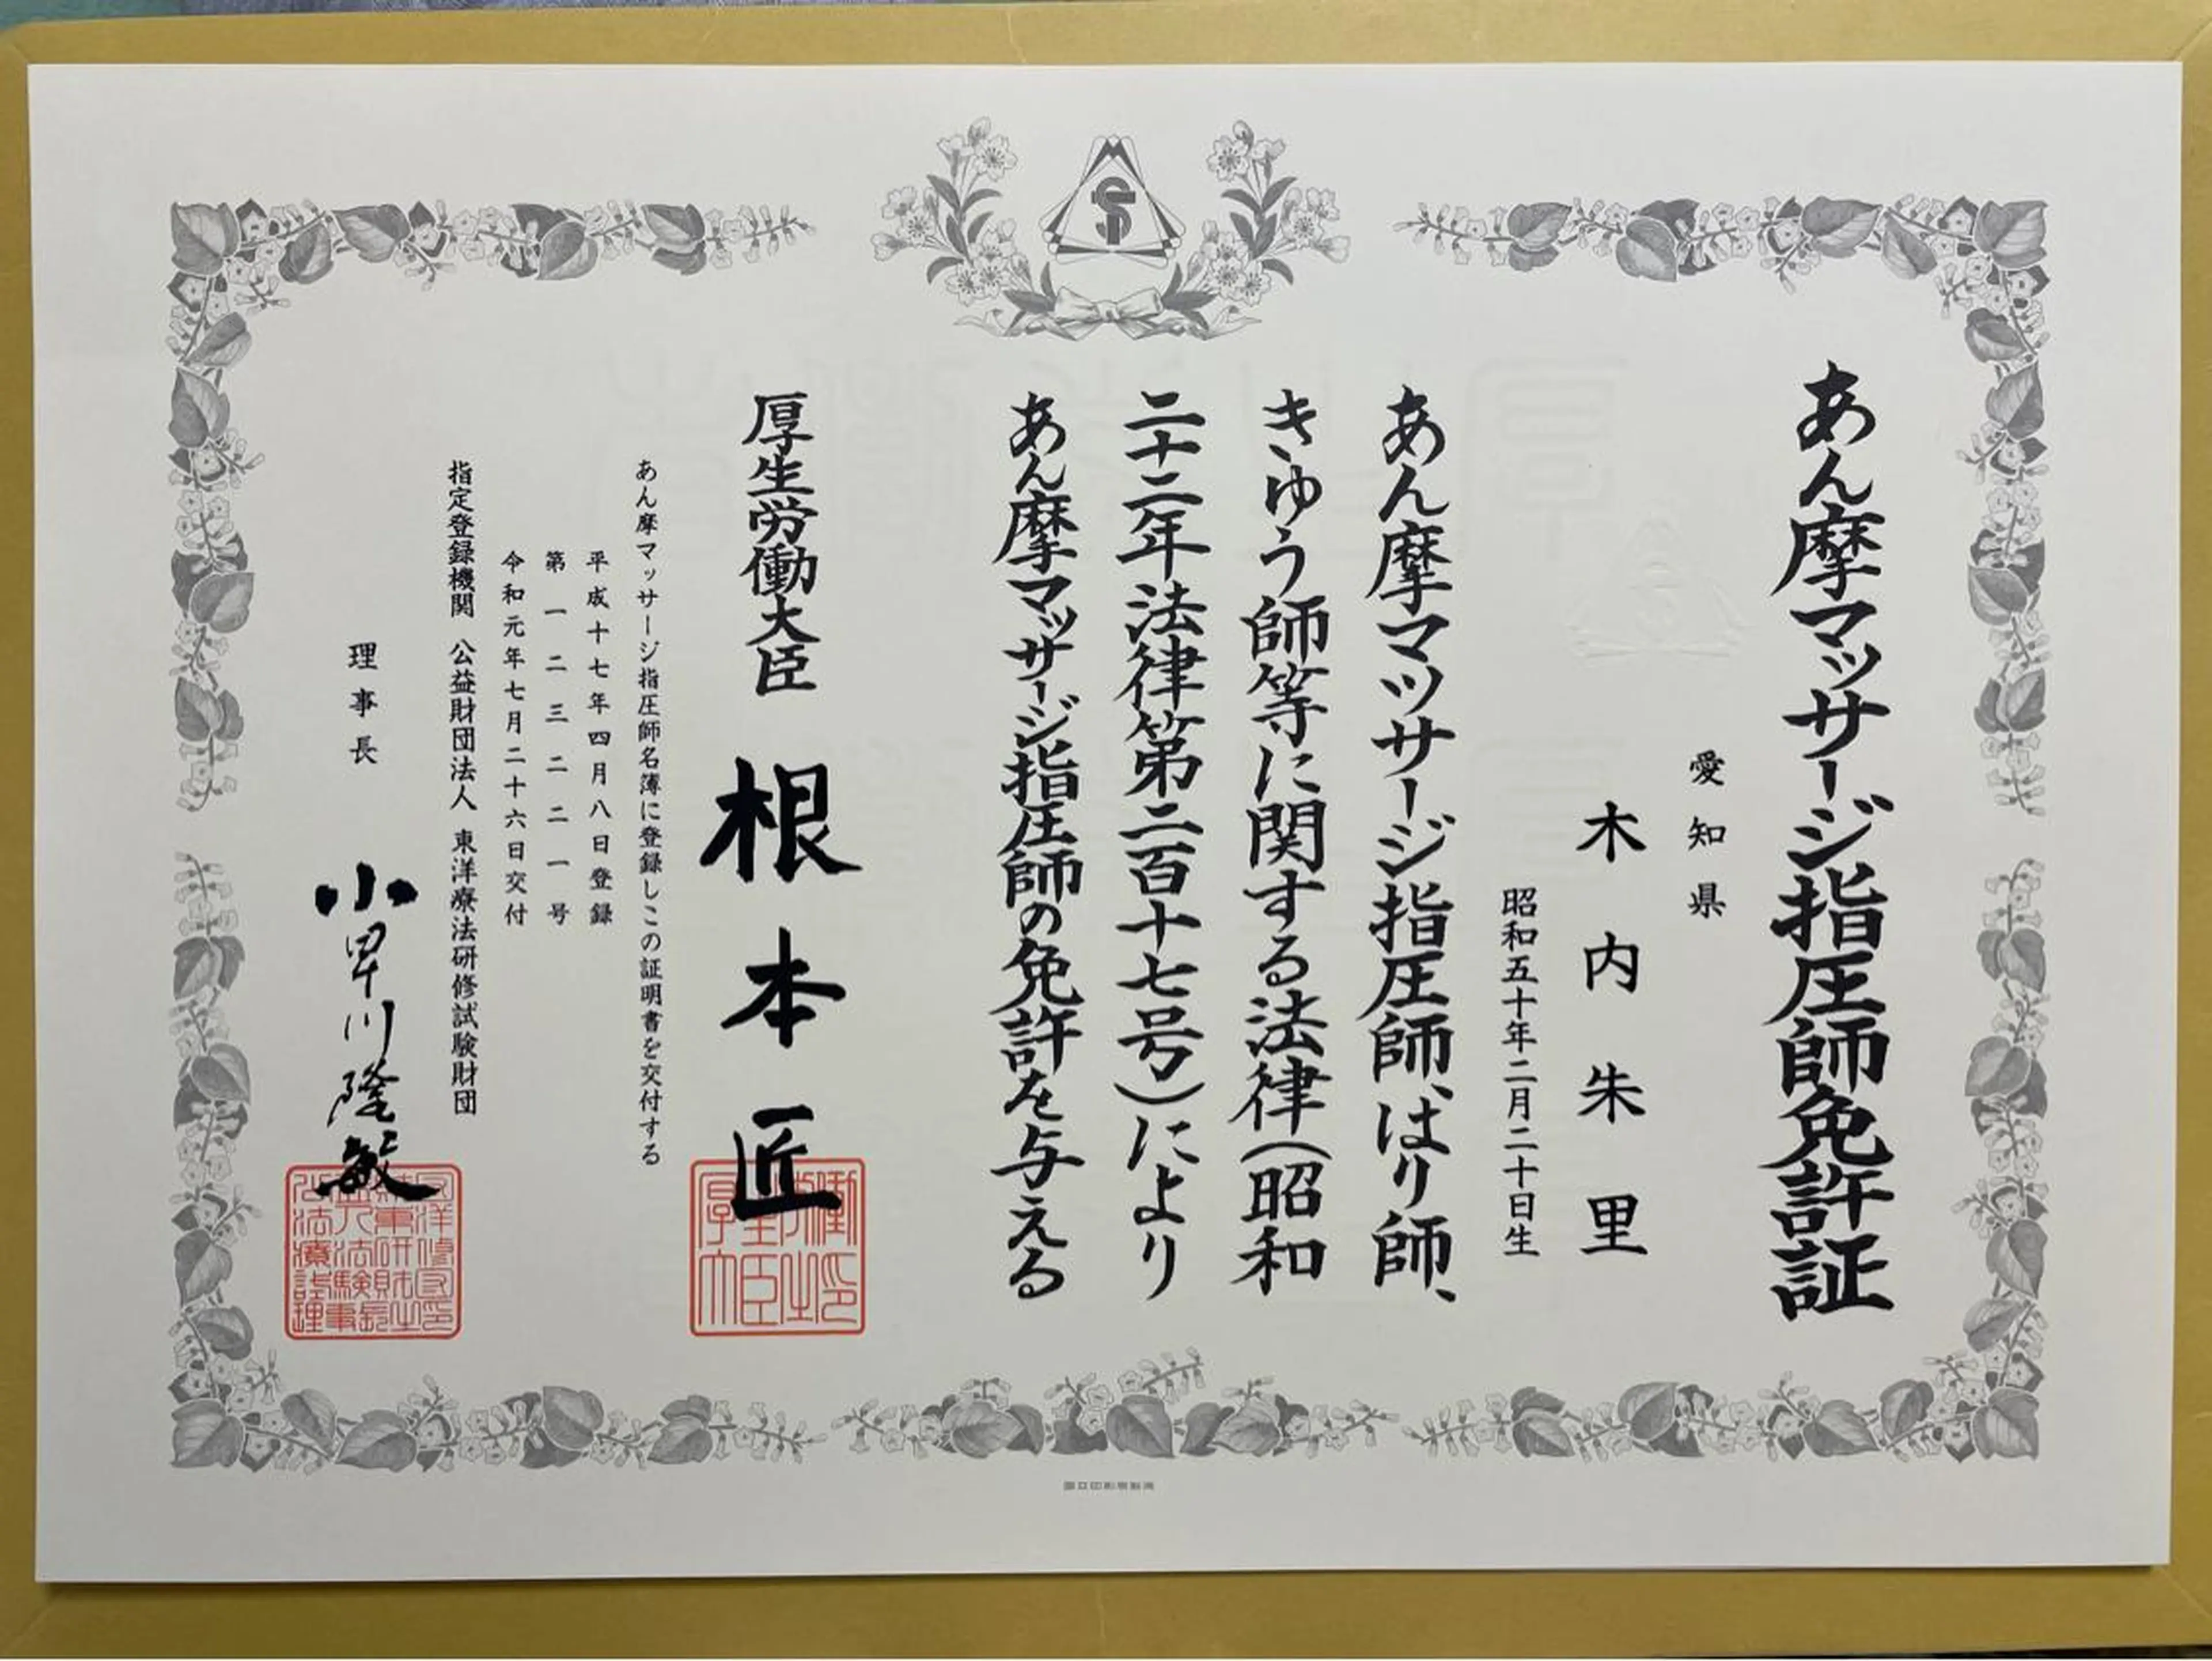 あん摩マッサージ指圧師免許証
愛知県
木内朱里
昭和五十年二月二十日生
あん摩マッサージ指圧師、はり師、
きゆう師等に関する法律(昭和
二十二年法律第二百十七号)により
あん摩マッサージ指圧師の免許を与える
厚生労働大臣 根本匠
あん摩マッサージ指圧師名簿に登録しこの証明書を交付する
平成十七年四月八日登録
第一二三二二一号
令和元年七月二十六日交付
指定登録機関 公益財団法人 東洋療法研修試験財団
理事長 小早川隆敏